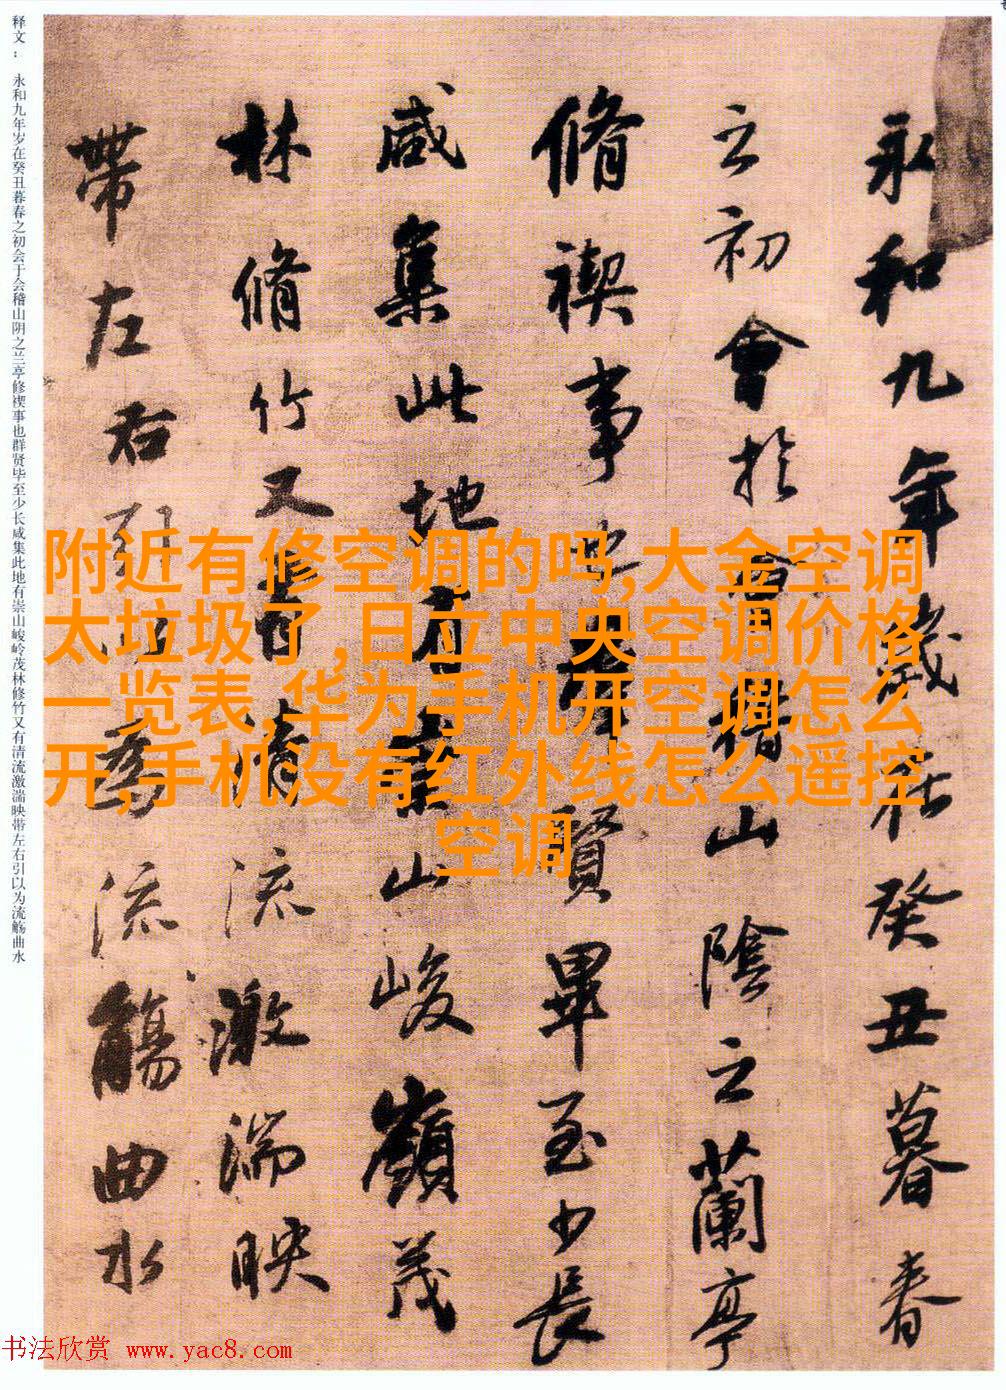 永和九年歲在癸丑暮春
之初會於會稽山陰之蘭亭
脩禊事也羣賢畢至少長
咸集此地有崇山峻嶺茂
林脩竹又有清流激湍映
帶左右引以為流觴曲水
释文：永和九年岁在癸丑暮春之初会于会稽山阴之兰亭修禊事也群贤毕至少长咸集此地有崇山峻岭茂林修竹又有清流激湍映带左右引以为流觞曲水
附近有修空调的吗,大金空调
太垃圾了,日立中央空调价格
一览表,华为手机开空调怎么
开,手机没有红外线怎么遥控
空调
书法欣赏 www.yac8.com